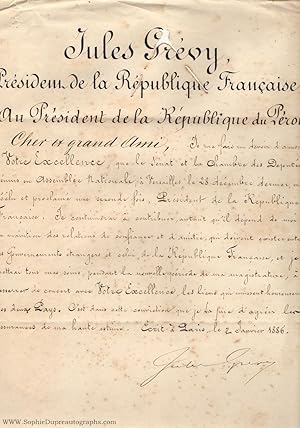 Jules Grévy,
Présiden de la République Française
Au Président de la République du Pérou
Cher et grand Ami, Je me fais un devoir d'annon
Votre Excellence, que le Sénat et la Chambre des Députés
réunis en Assemblée Nationale, à Versailles, le 28 décembre dernier, m
et proclamé une seconde fois, Président de la République
Française. Je continuerai à contribuer, autant qu'il dépend de moi
maintien des relations de confiance et d'amitié, qui doivent exister ent
Gouvernements étrangers et celui de la République Française, et je
mettrai tous mes soins, pendant la nouvelle période de ma magistrature, à
resserrer de concert avec Votre Excellence, les liens qui unissent heureuse
nos deux Pays. C'est dans cette conviction que je la prie d'agréer les
assurances de ma haute estime. Écrit à Paris, le 2 Janvier 1886.
Jules Grévy
www.SophieDupreautographs.com